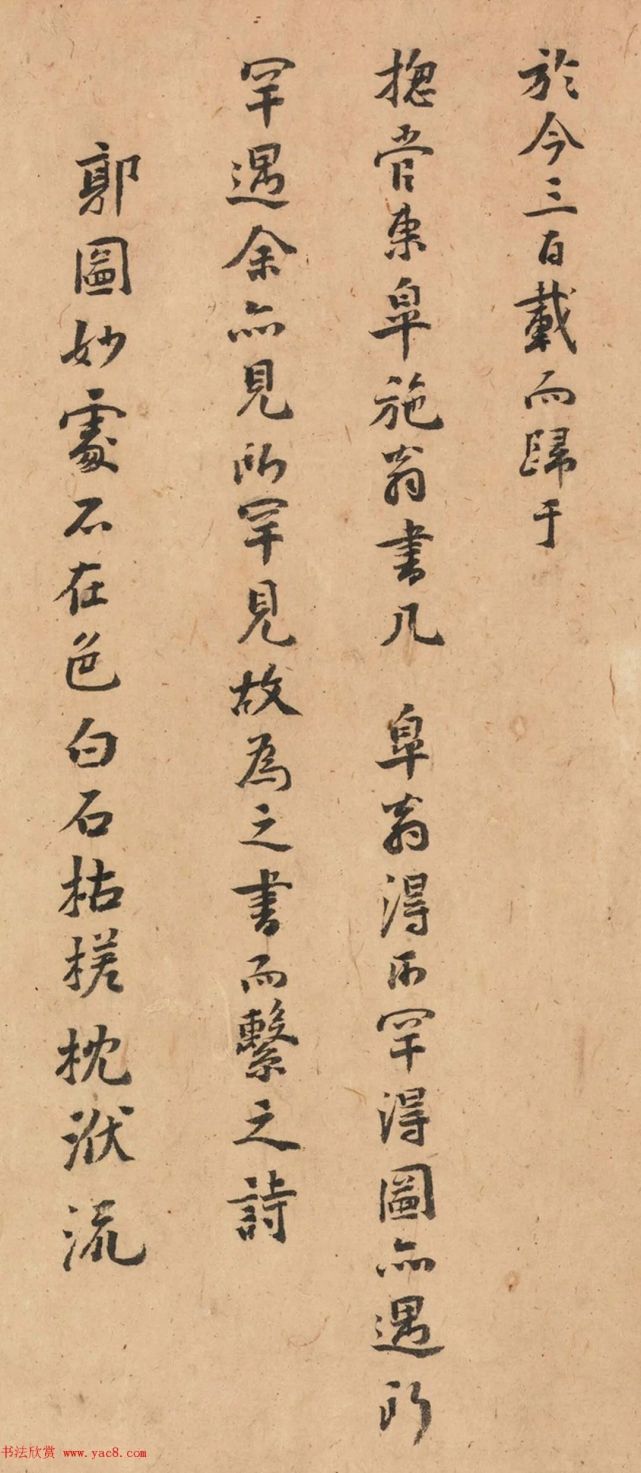 於今三百載而歸于
揔管東皐施翁書几　皐翁得所罕得圖亦遇所
罕遇余亦見所罕見故爲之書而繫之詩
郭圖妙處不在色白石枯槎枕洑流
书法欣赏 www.yac8.com